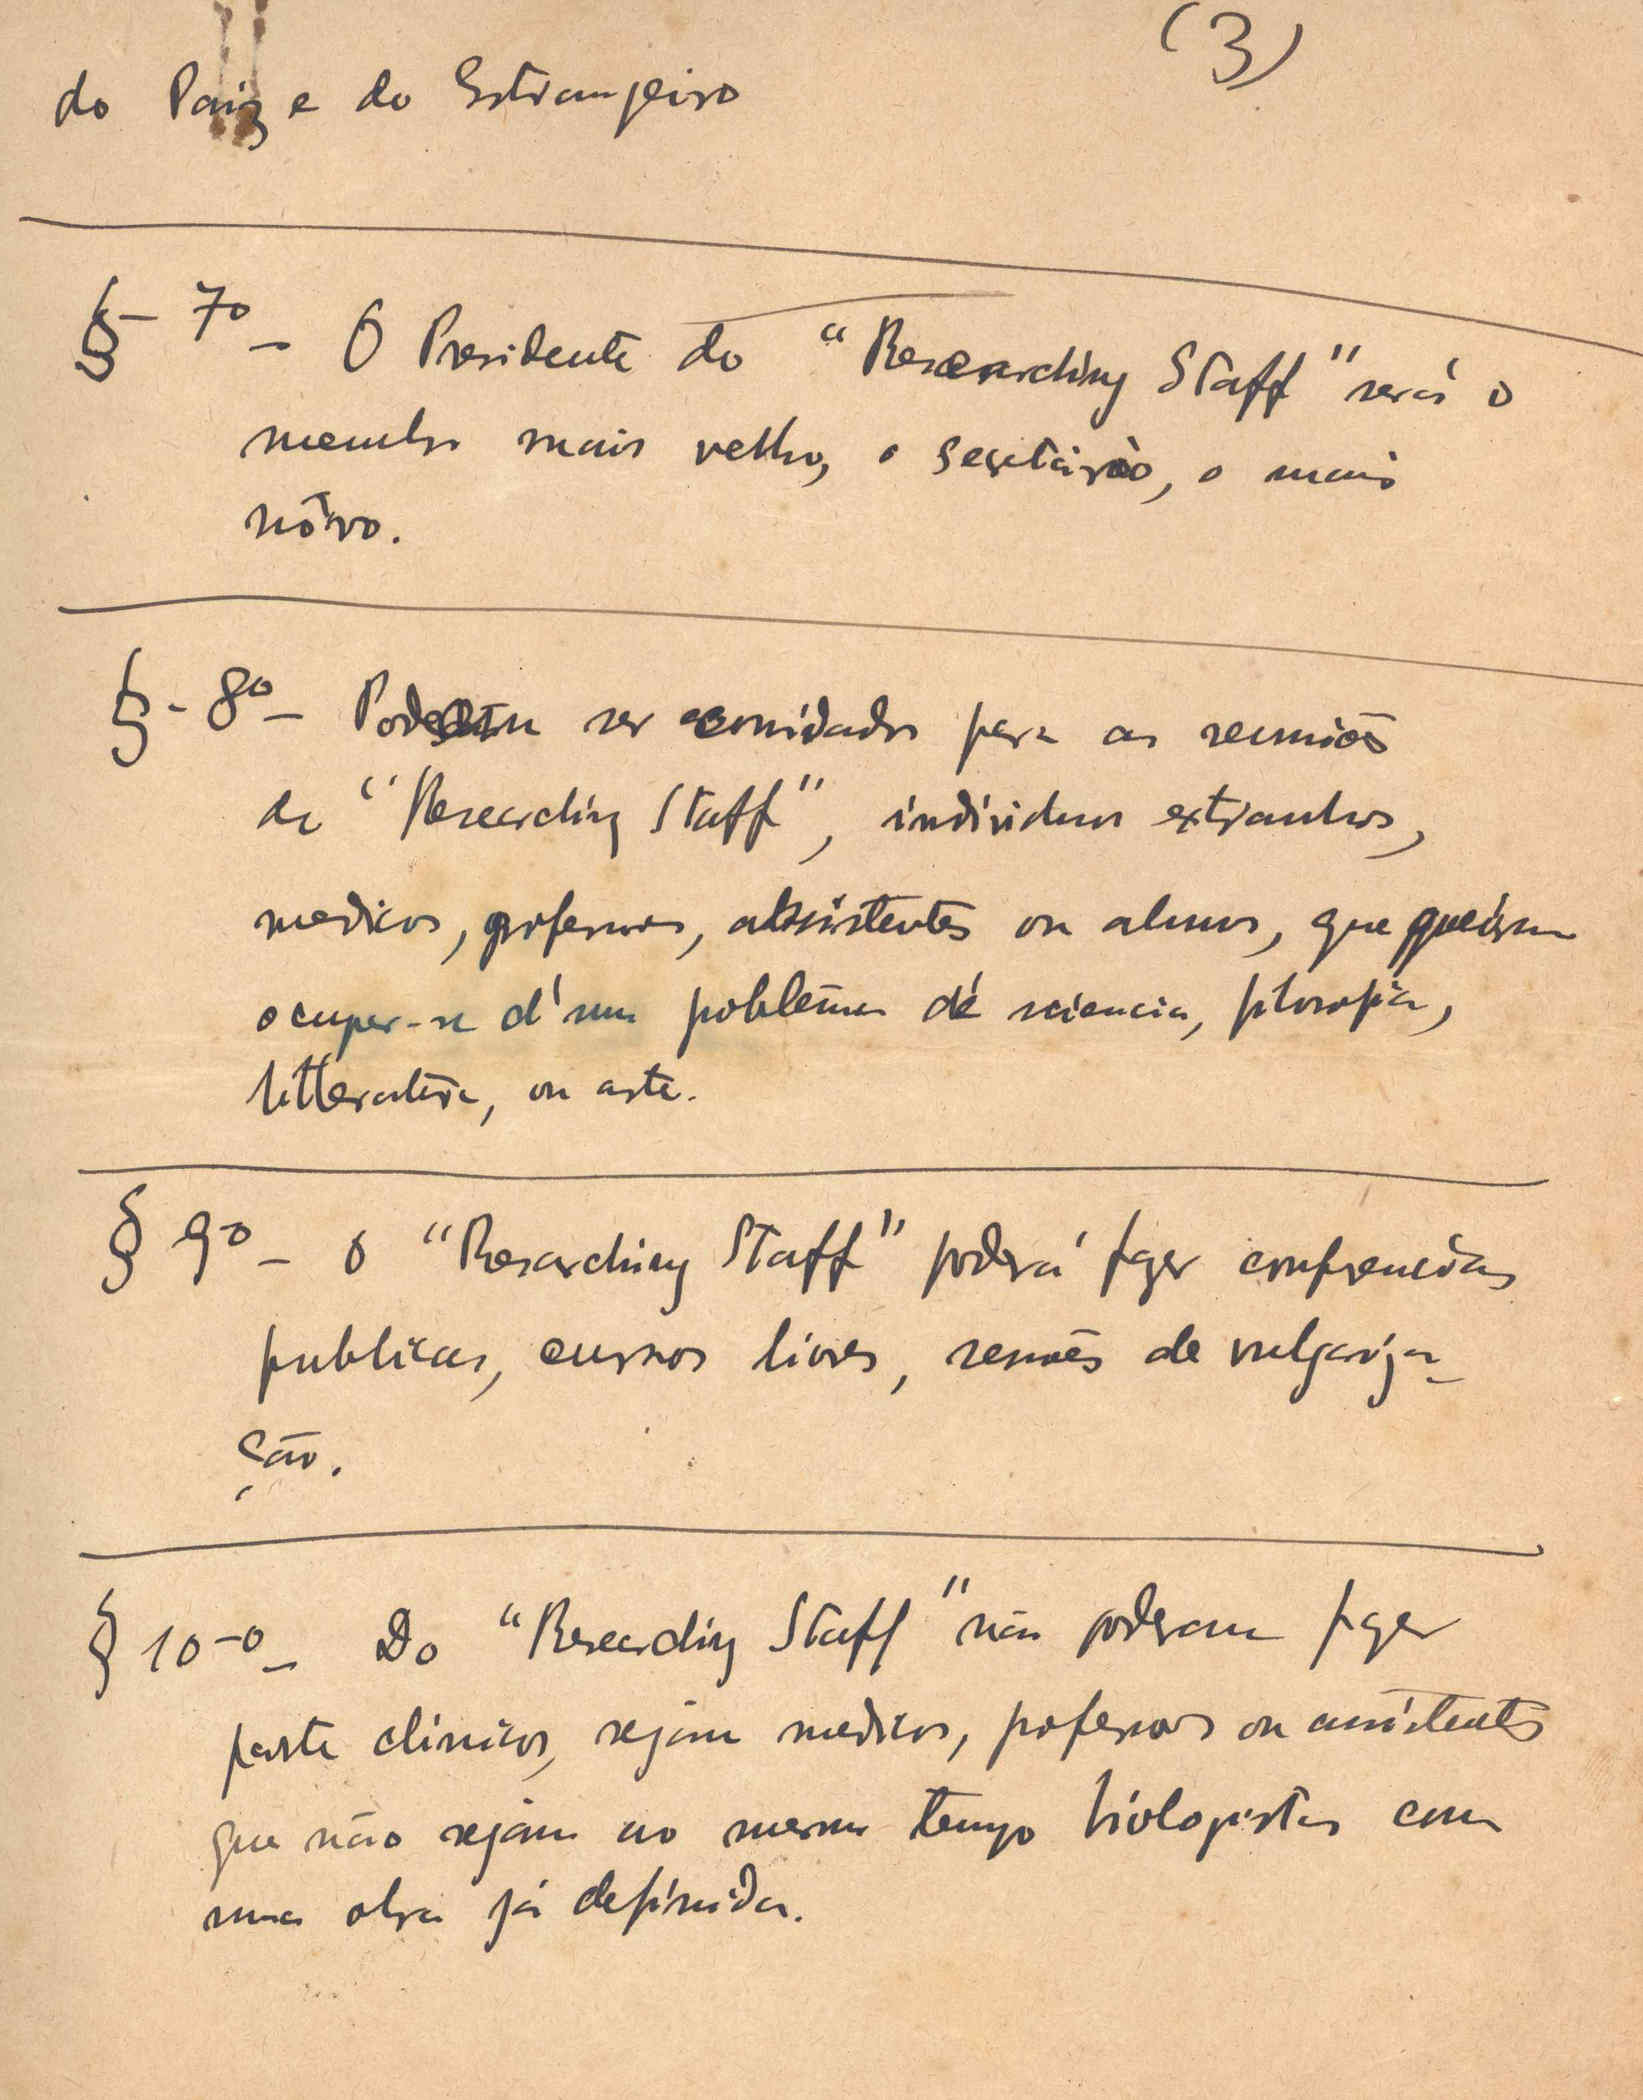 (3)
do Paiz e do Estrangeiro
§- 7º - O Presidente do "Researching Staff" será o
membro mais velho, o secretário, o mais
nôvo.
§- 8º - Poderam ser convidados para as reuniões
do "Researching Staff", individuos extranhos,
medicos, professores, assistentes ou alunos, que queiram
ocupar-se d'um problema de sciencia, filosofia,
litteratura, ou arte.
§ 9º - O "Researching Staff" poderá fazer conferencias
publicas, cursos livres, sessões de vulgariza-
ção.
§ 10-º - Do "Researching Staff" não poderam fazer
parte clinicos, sejam medicos, professores ou assistentes
que não sejam ao mesmo tempo biologistas com
uma obra já definida.